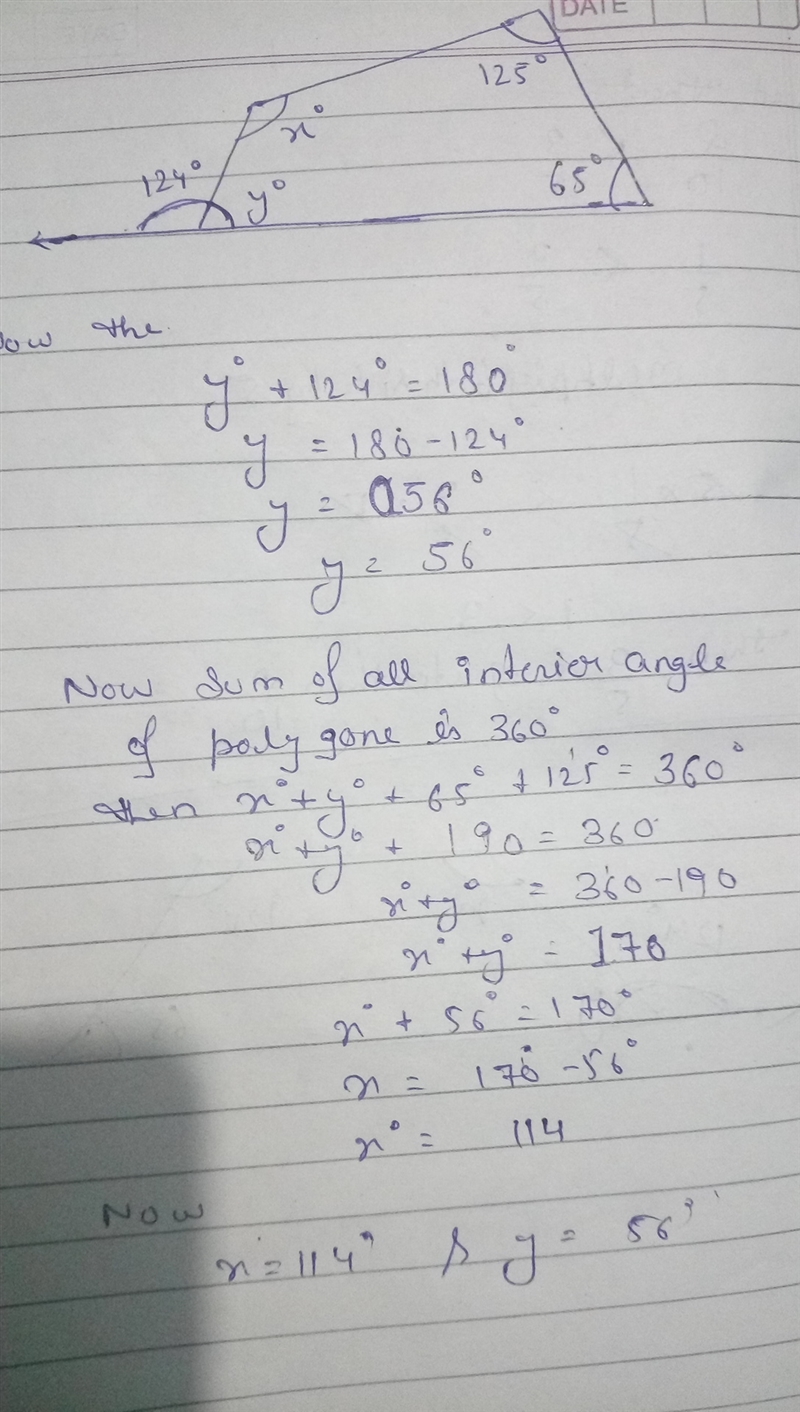 DATE
125°
x°
124°
y°
65°
ow the
y° + 124° = 180°
y = 180 - 124°
y = 056°
y = 56°
Now Sum of all interior angle
of poly gone is 360°
then x° + y° + 65° + 125° = 360°
x° + y° + 190 = 360
x° + y° = 360 - 190
x° + y° = 170
x° + 56° = 170°
x = 170 - 56°
x° = 114
Now
x = 114° & y = 56°